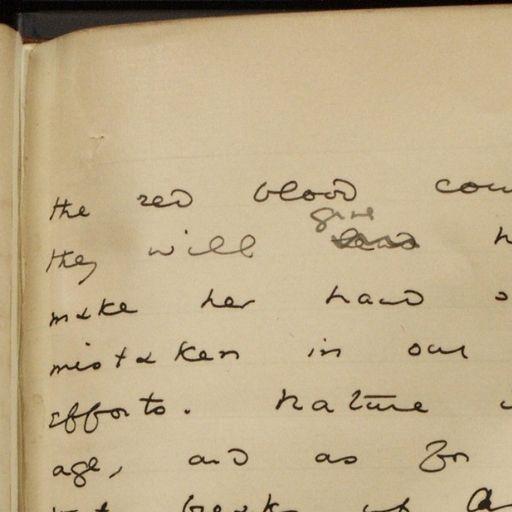 the red blood cou
give
they will lead h
make her hand
mistaken in our
efforts. Nature
age, and as for